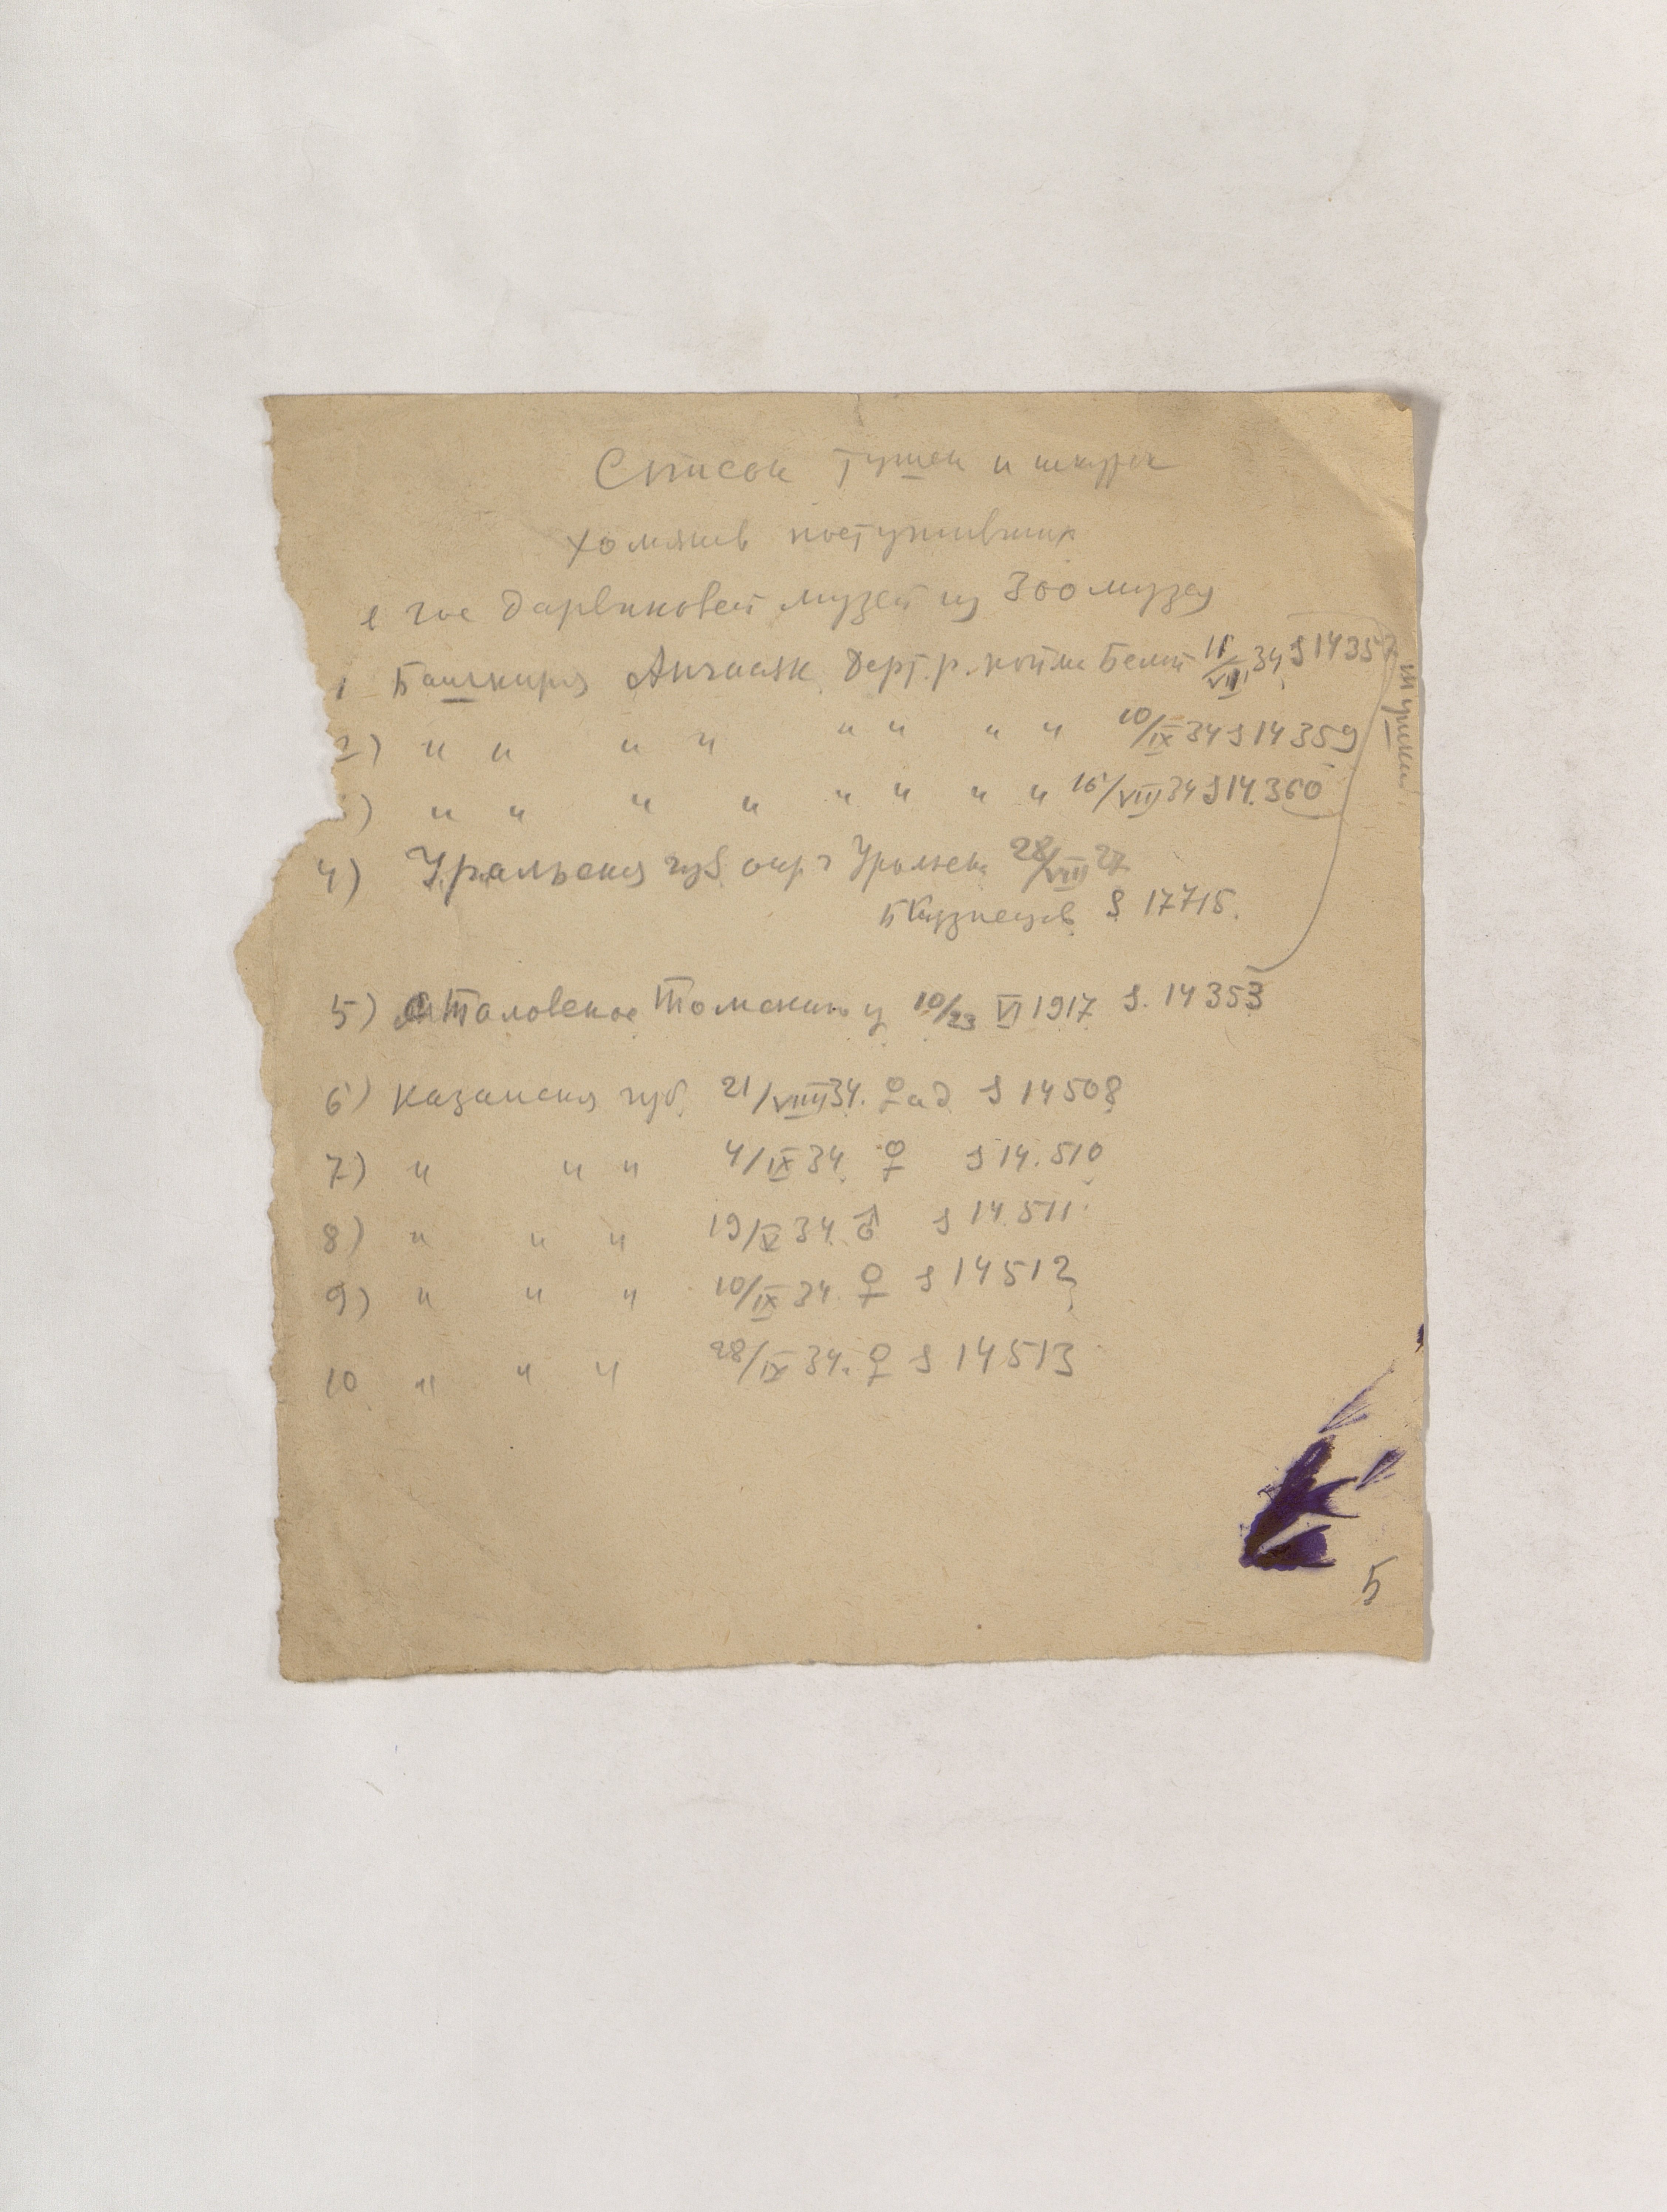 Список тушек и шкурок
хомяков поступивших
в Гос Дарвиновский музей из Зоомузея
1 Башкирия Дерт. р. пойма Белой 11/VIII 34 S 1435
2) " " " " " " " " 10/IX 34 S 14359
) " " " " " " " " 16/VIII 34 S 14.360
тушки
4) Уральская губ окр г Уральска 28/VIII 27
Б Кузнецов S 17715.
5) Томский у 10/23 VI 1917 S. 14353
6) Казанская губ. 21/VIII 34. ♀ ад S 14508
7) " " " 4/IX 34. ♀ S 14.510
8) " " " 19/V 34. ♂ S 14.511
9) " " " 10/IX 34. ♀ S 14512
10 " " " 28/IX 34. ♀ S 14513
5